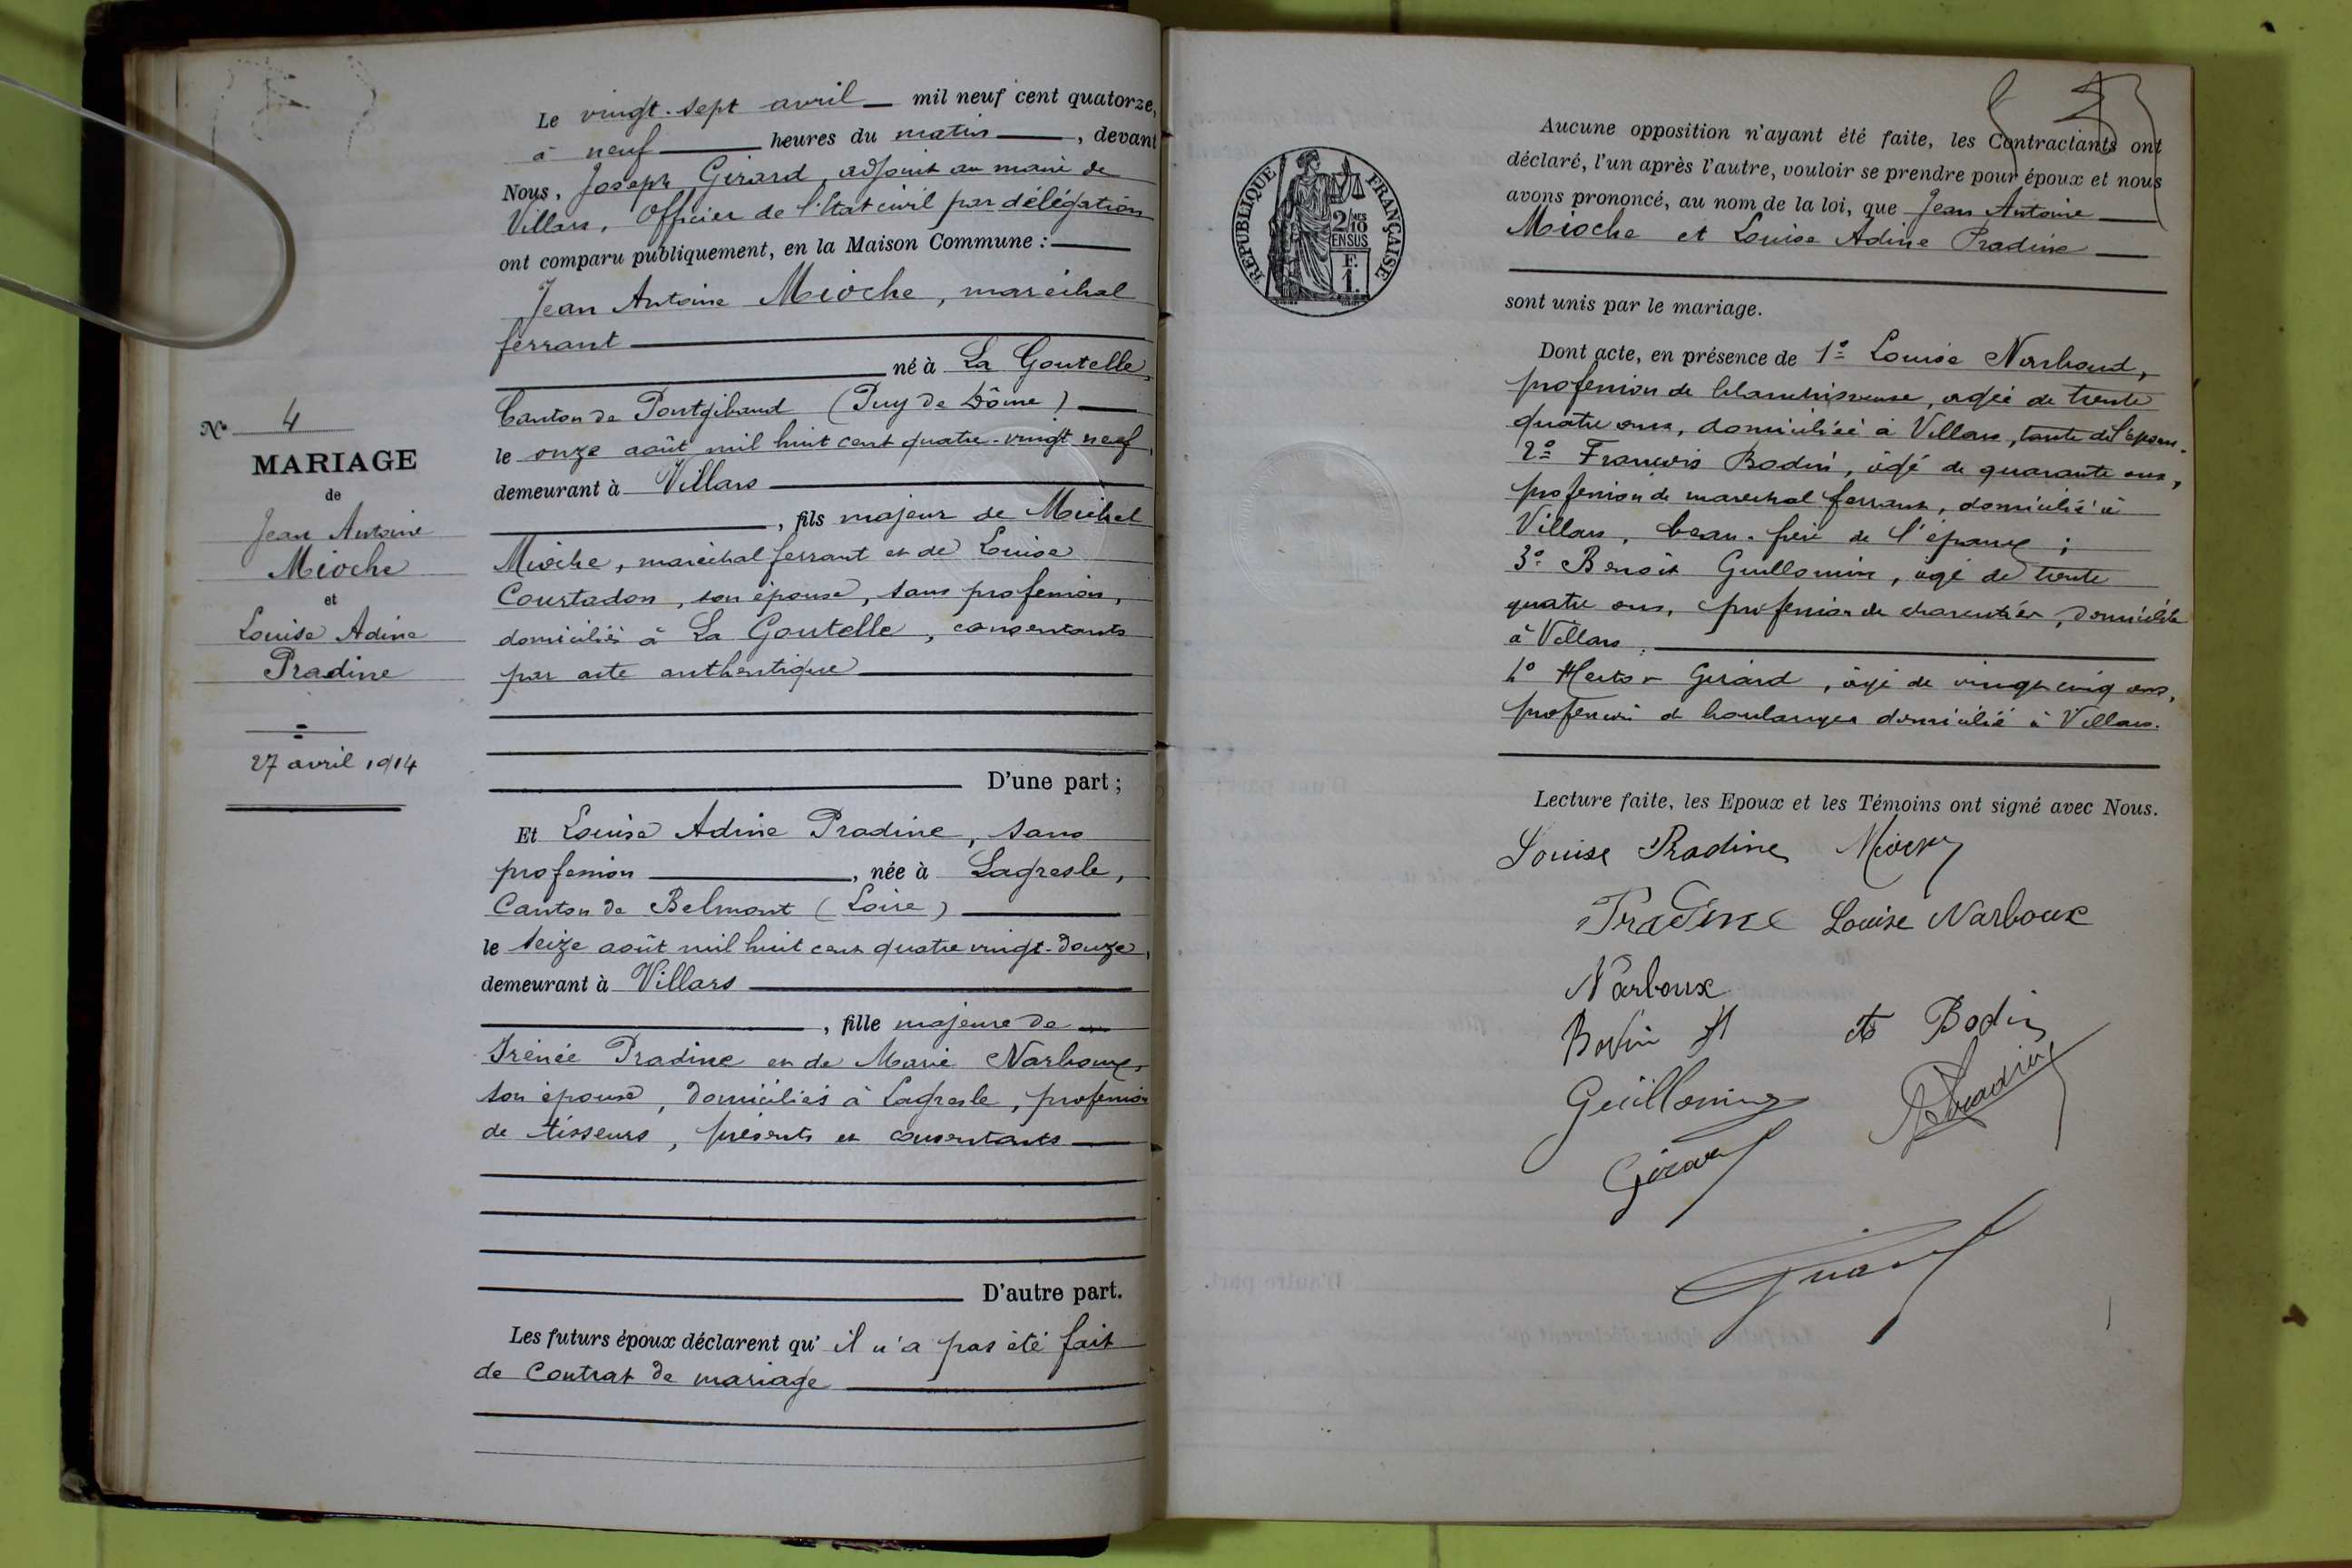 N° 4
MARIAGE
de
Jean Antoine
Mioche
et
Louise Adine
Pradine
27 avril 1914
Le vingt-sept avril mil neuf cent quatorze,
à neuf heures du matin, devant
Nous, Joseph Girard, adjoint au maire de
Villars, Officier de l'Etat civil par délégation
ont comparu publiquement, en la Maison Commune :
Jean Antoine Mioche, maréchal
ferrant
né à La Goutelle,
Canton de Pontgibaud (Puy de Dôme)
le onze août mil huit cent quatre-vingt neuf,
demeurant à Villars
, fils majeur de Michel
Mioche, maréchal ferrant et de Louise
Courtadon, son épouse, sans profession,
domiciliés à La Goutelle, consentants
par acte authentique
D'une part ;
Et Louise Adine Pradine, sans
profession, née à Lagresle,
Canton de Belmont (Loire)
le seize août mil huit cent quatre vingt-douze,
demeurant à Villars
, fille majeure de
Irénée Pradine et de Marie Narboux,
son épouse, domiciliés à Lagresle, profession
de tisseurs, présents et consentants
D'autre part.
Les futurs époux déclarent qu'il n'a pas été fait
de contrat de mariage
RÉPUBLIQUE FRANÇAISE
2/10
EN SUS
F.
1.
Aucune opposition n'ayant été faite, les Contractants ont
déclaré, l'un après l'autre, vouloir se prendre pour époux et nous
avons prononcé, au nom de la loi, que Jean Antoine
Mioche et Louise Adine Pradine
sont unis par le mariage.
Dont acte, en présence de 1° Louise Narboud,
profession de blanchisseuse, agée de trente
quatre ans, domiciliée à Villars, tante de l'épouse.
2° François Bodin, âgé de quarante ans,
profession de marechal ferrant, domicilié à
Villars, beau-frère de l'époux ;
3° Benoit Guillomin, agé de trente
quatre ans, profession de charcutier, domicilié
à Villars.
4° Hector Girard, âgé de vingt cinq ans,
profession de boulanger domicilié à Villars.
Lecture faite, les Epoux et les Témoins ont signé avec Nous.
Louise Pradine Mioche
Pradine Louise Narboux
Narboux
Bodin Bodin
Guillomin Pradine
Girard
Girard